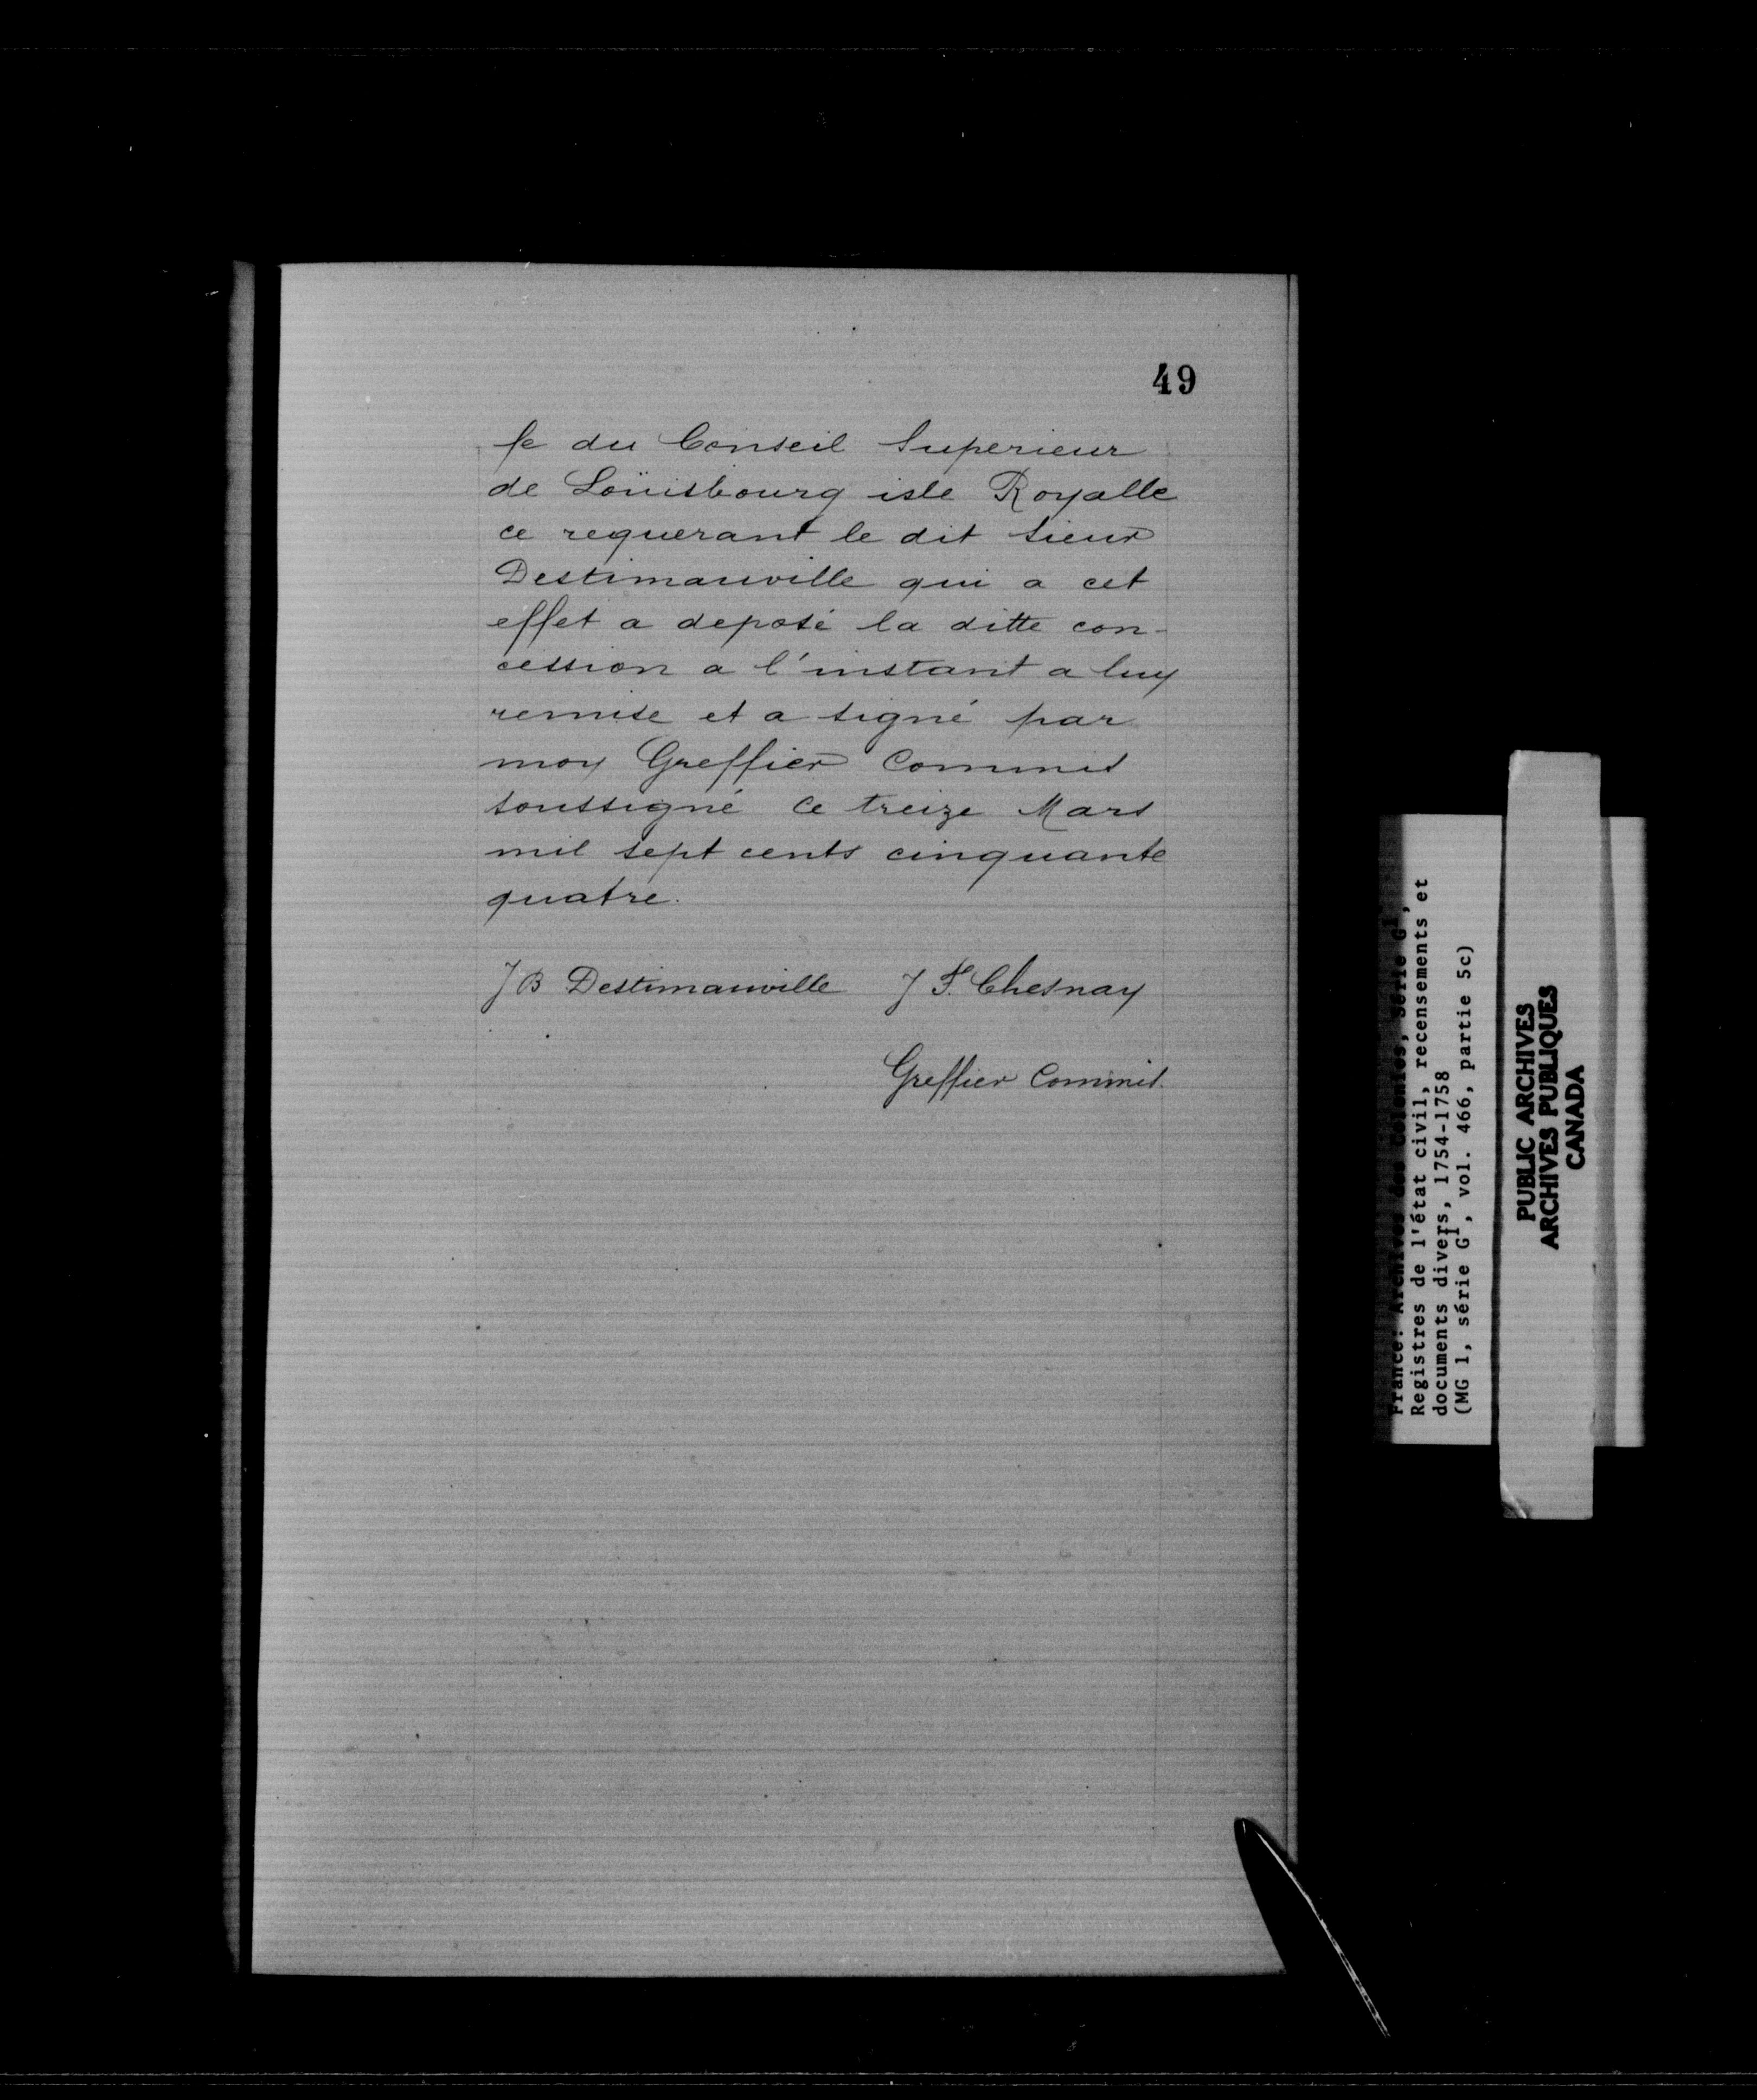 49
fe du Conseil Superieur
de Loüisbourg isle Royalle
ce requerant le dit Sieur
Destimauville qui a cet
effet a deposé la ditte con-
cession a l'instant a luy
remise et a signé par
moy Greffier Commis
soussigné Ce treize Mars
mil sept cents cinquante
quatre.
J B Destimauville J F. Chesnay
Greffier Commis.
France: Archives des Colonies, Série G1,
Registres de l'état civil, recensements et
documents divers, 1754-1758
(MG 1, série G1, vol. 466, partie 5c)
PUBLIC ARCHIVES
ARCHIVES PUBLIQUES
CANADA